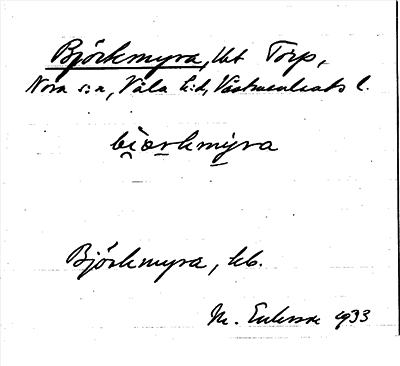 Björkmyra, lht Torp,
Nora s:n, Våla h:d, Västmanlands l.
biörkmỳra
Björkmyra, kb.
M. Eriksson 1933